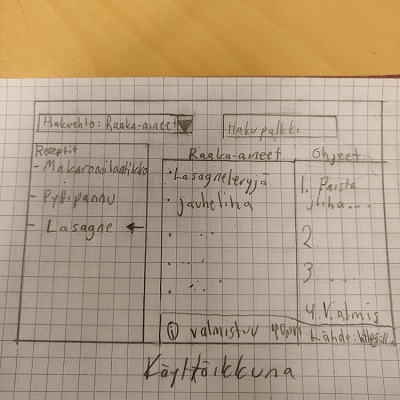 Hakuehto: Raaka-aineet
Hakupalkki
Reseptit
- Makaroonilaatikko
- Pyttipannu
- Lasagne ←
Raaka-aineet
• Lasagnelevyjä
• jauheliha
• ...
• ...
• ...
Ohjeet
1. Paista
jliha....
2
3....
4. Valmis
i valmistuu 40min
Lähde: https://
Käyttöikkuna